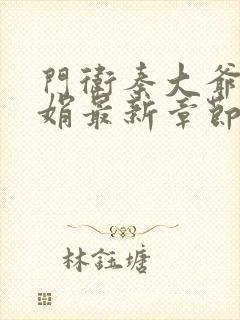 門衛秦大爺
娟最新章節
林鈺塘